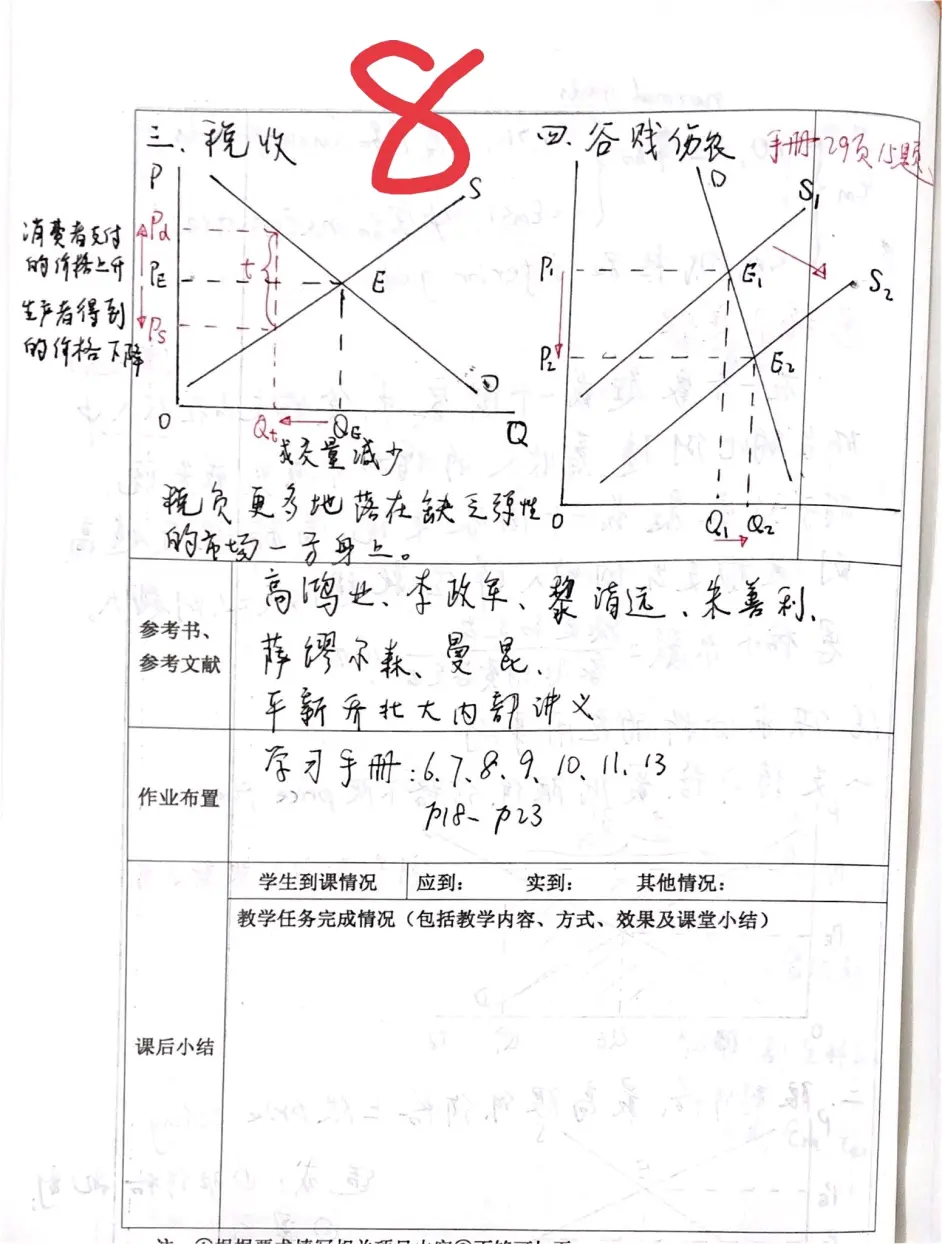 8
三、税收
P
S
消费者支付
的价格上升
生产者得到
的价格下降
Pd
PE
PS
t
E
D
O
Qt
QE
Q
成交量减少
税负更多地落在缺乏弹性
的市场一方身上。
四、谷贱伤农
手册29页15题
D
S1
P1
E1
S2
P2
E2
O
Q1
Q2
参考书、
参考文献
高鸿业、李政军、黎诣远、朱善利、
萨缪尔森、曼昆、
平新乔北大内部讲义
作业布置
学习手册:6、7、8、9、10、11、13
P18-P23
课后小结
学生到课情况 应到: 实到: 其他情况:
教学任务完成情况(包括教学内容、方式、效果及课堂小结)